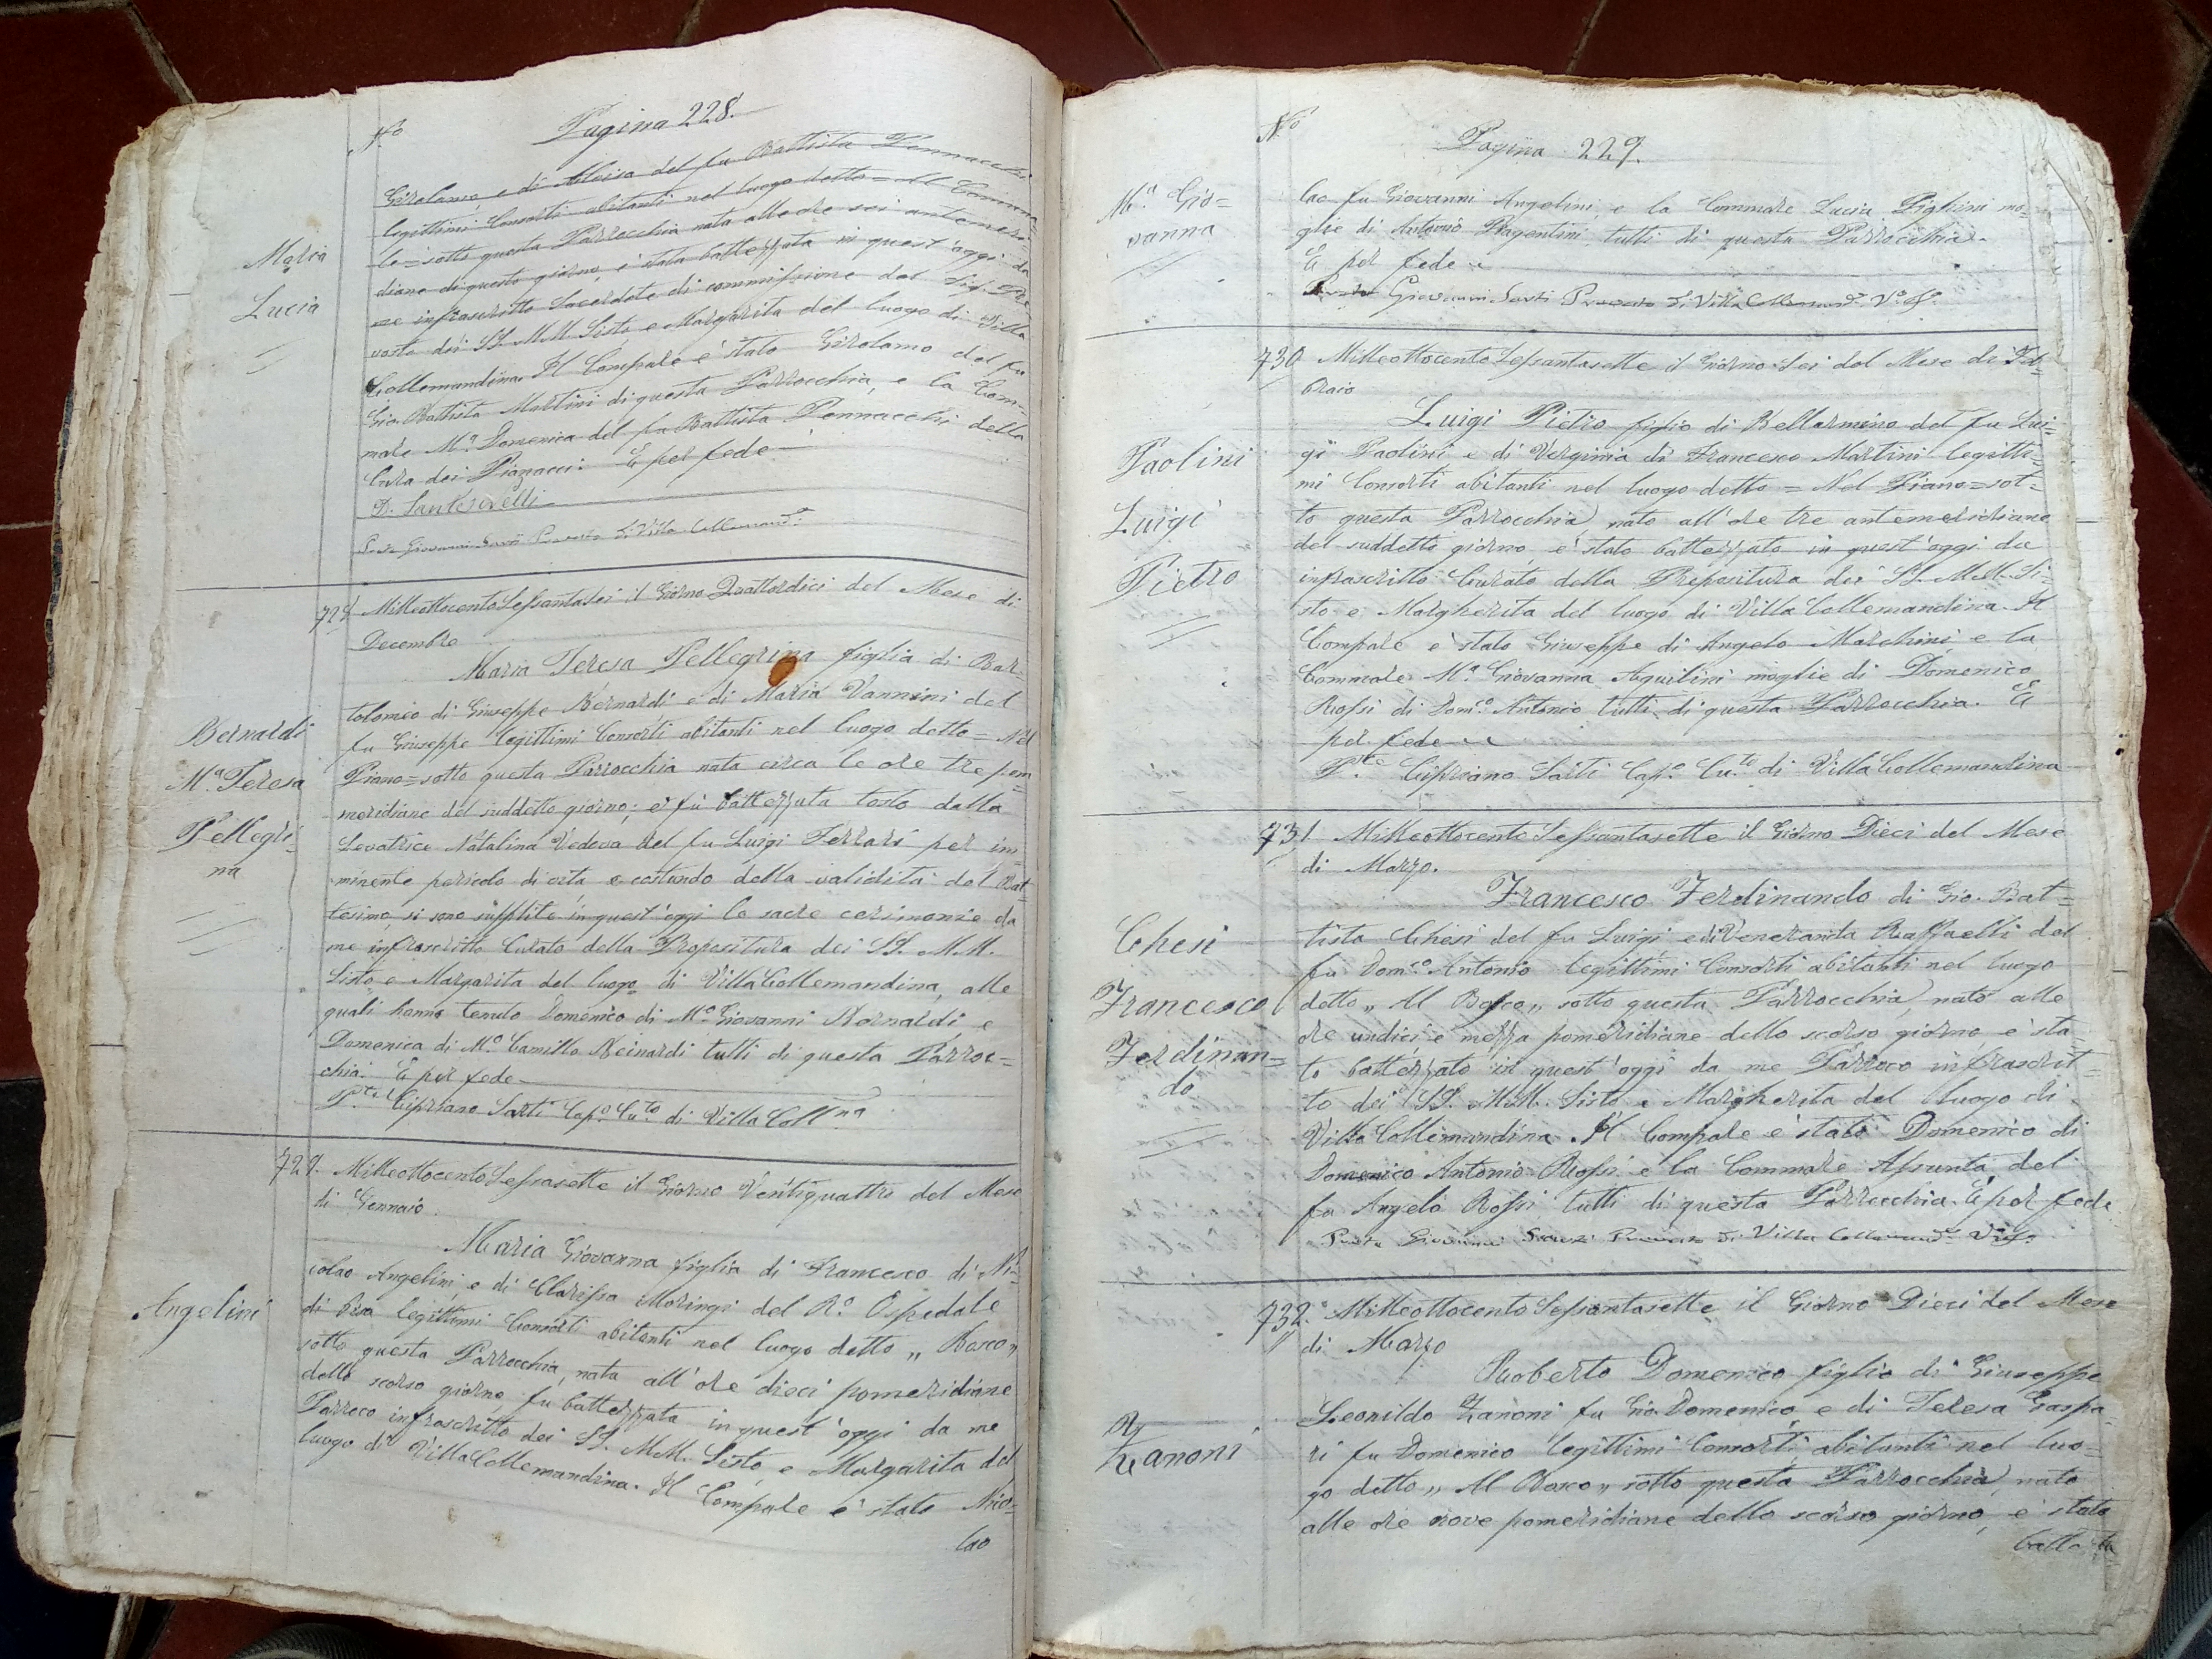 N.o
Pagina 228.
Girolamo, e di Aloisa del fu Battista Pennacchi
legittimi Consorti abitanti nel luogo detto = Al Communa
le = sotto questa Parrocchia nata alle ore sei antemeri
diane di questo giorno, è stata battezzata in quest'oggi da
me infrascritto Sacerdote di commissione del Sig. Pre
vosto dei SS. M.M. Sisto e Margarita del luogo di Villa
Collemandina. Il Compare è stato Girolamo del fu
Gio. Battista Martini di questa Parrocchia, e la Com=
mare M.a Domenica del fu Battista Pennacchi della
Cura dei Piazzacci. E per fede
Maria
Lucia
Prete Giovanni Prevosto di Villa Collemand.a
728 Milleottocento Sessantasei il Giorno Quattordici del Mese di
Decembre
Maria Teresa Pellegrina figlia di Bar=
tolomeo di Giuseppe Bernardi e di Maria Vannini del
fu Giuseppe legittimi Consorti abitanti nel luogo detto = Nel
Piano = sotto questa Parrocchia nata circa le ore tre pom
meridiane del suddetto giorno; e fù battezzata tosto dalla
Levatrice Natalina Vedova del fu Luigi Ferrari per im=
minente pericolo di vita, e costando della validità del Bat=
tesimo, si sono supplite in quest'oggi le sacre cerimonie da
me infrascritto Curato della Propositura dei SS. M.M.
Sisto e Margarita del luogo di Villa Collemandina, alle
quali hanno tenuto Domenico di M.o Giovanni Bernardi e
Domenica di M.o Camillo Bernardi tutti di questa Parroc=
chia. E per fede
P.te Cipriano Sarti Cap.o Cu.to di Villa Coll.na
Bernardi
M.a Teresa
Pellegri=
na
729. Milleottocento Sessasette il Giorno Ventiquattro del Mese
di Gennaio.
Maria Giovanna figlia di Francesco di Ni=
colao Angelini, e di Clarissa Moringi del R.o Ospedale
di Pisa legittimi Consorti abitanti nel luogo detto „ Bosco „
sotto questa Parrocchia, nata all'ore dieci pomeridiane
dello scorso giorno, fu battezzata in quest'oggi da me
Parroco infrascritto dei SS. M.M. Sisto, e Margarita del
luogo di Villa Collemandina. Il Compare è stato Nico=
lao
Angelini
N.o
Pagina 229.
lao fu Giovanni Angelini, e la Commare Lucia Pighini mo=
glie di Antonio Bagentini, tutti di questa Parrocchia.
E per fede
Prete Giovanni Prevosto di Villa Collemand.a
M.a Gio=
vanna
730 Milleottocento Sessantasette il Giorno Sei del Mese di Feb
braio
Luigi Pietro figlio di Bellarmino del fu Lui=
gi Paolini e di Verginia di Francesco Martini legitti=
mi Consorti abitanti nel luogo detto = Nel Piano = sot=
to questa Parrocchia, nato all'ore tre antemeridiane
del suddetto giorno, è stato battezzato in quest'oggi da
infrascritto Curato della Prepositura dei SS. M.M. Si=
sto e Margherita del luogo di Villa Collemandina. Il
Compare è stato Giuseppe di Angelo Marchini e la
Commare M.a Giovanna Aquilini moglie di Domenico
Rossi di Dom.co Antonio tutti di questa Parrocchia. E
per fede
P.te Cipriano Sarti Cap.o Cu.to di Villa Collemandina
Paolini
Luigi
Pietro
731 Milleottocento Sessantasette il Giorno Dieci del Mese
di Marzo.
Francesco Ferdinando di Gio. Bat=
tista Chesi del fu Luigi e di Veneranda Raffaelli del
fu Dom.co Antonio legittimi Consorti abitanti nel luogo
detto „ Al Bosco „ sotto questa Parrocchia, nato alle
ore undici e mezza pomeridiane dello scorso giorno, è sta=
to battezzato in quest'oggi da me Parroco infrascrit=
to dei SS. M.M. Sisto e Margherita del luogo di
Villa Collemandina. Il Compare è stato Domenico di
Domenico Antonio Rossi e la Commare Assunta del
fu Angelo Rossi tutti di questa Parrocchia. E per fede
Prete Giovanni Prevosto di Villa Collemand.a
Chesi
Francesco
Ferdinan=
do
732. Milleottocento Sessantasette il Giorno Dieci del Mese
di Marzo
Roberto Domenico figlio di Giuseppe
Leonildo Zanoni fu Gio. Domenico e di Teresa Gaspa=
ri fu Domenico legittimi Consorti abitanti nel luo=
go detto „ Al Bosco „ sotto questa Parrocchia, nato
alle ore nove pomeridiane dello scorso giorno, è stato
Zanoni